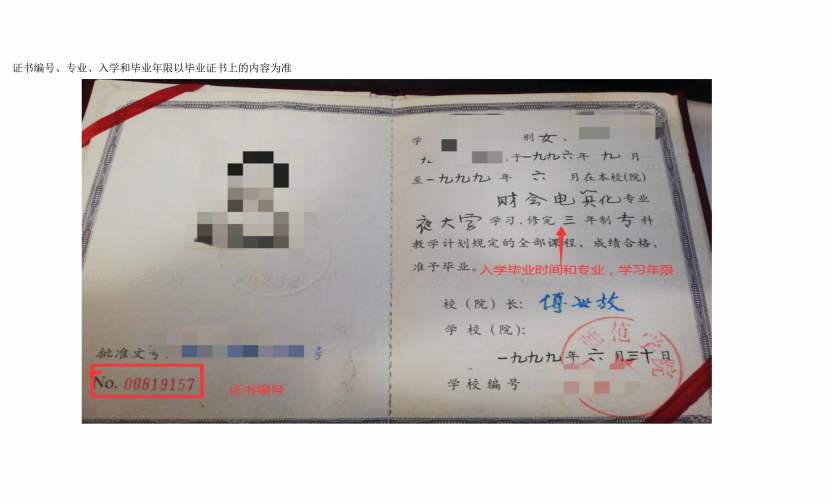 证书编号、专业、入学和毕业年限以毕业证书上的内容为准
学 别 女,
九 ,于一九九六年 九 月
至一九九九 年 六 月在本校(院)
财会电算化专业
夜大学 学习,修完 三 年制 专 科
教学计划规定的全部课程,成绩合格,
准予毕业。
入学毕业时间和专业,学习年限
校(院)长: 傅世放
学 校(院):
师范学院
一九九九年 六 月三十日
学校编号
批准文号. 号
No. 00819157
证书编号